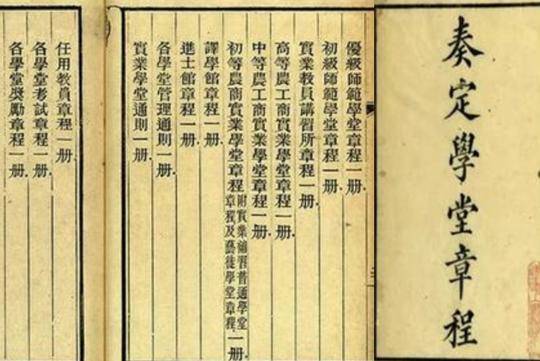 奏定學堂章程
優級師範學堂章程一册
初級師範學堂章程一册
實業教員講習所章程一册
高等農工商實業學堂章程一册
中等農工商實業學堂章程一册
初等農商實業學堂章程附實業補習普通學堂章程及藝徒學堂章程一册
譯學館章程一册
進士館章程一册
各學堂管理通則一册
實業學堂通則一册
任用教員章程一册
各學堂考試章程一册
各學堂獎勵章程一册